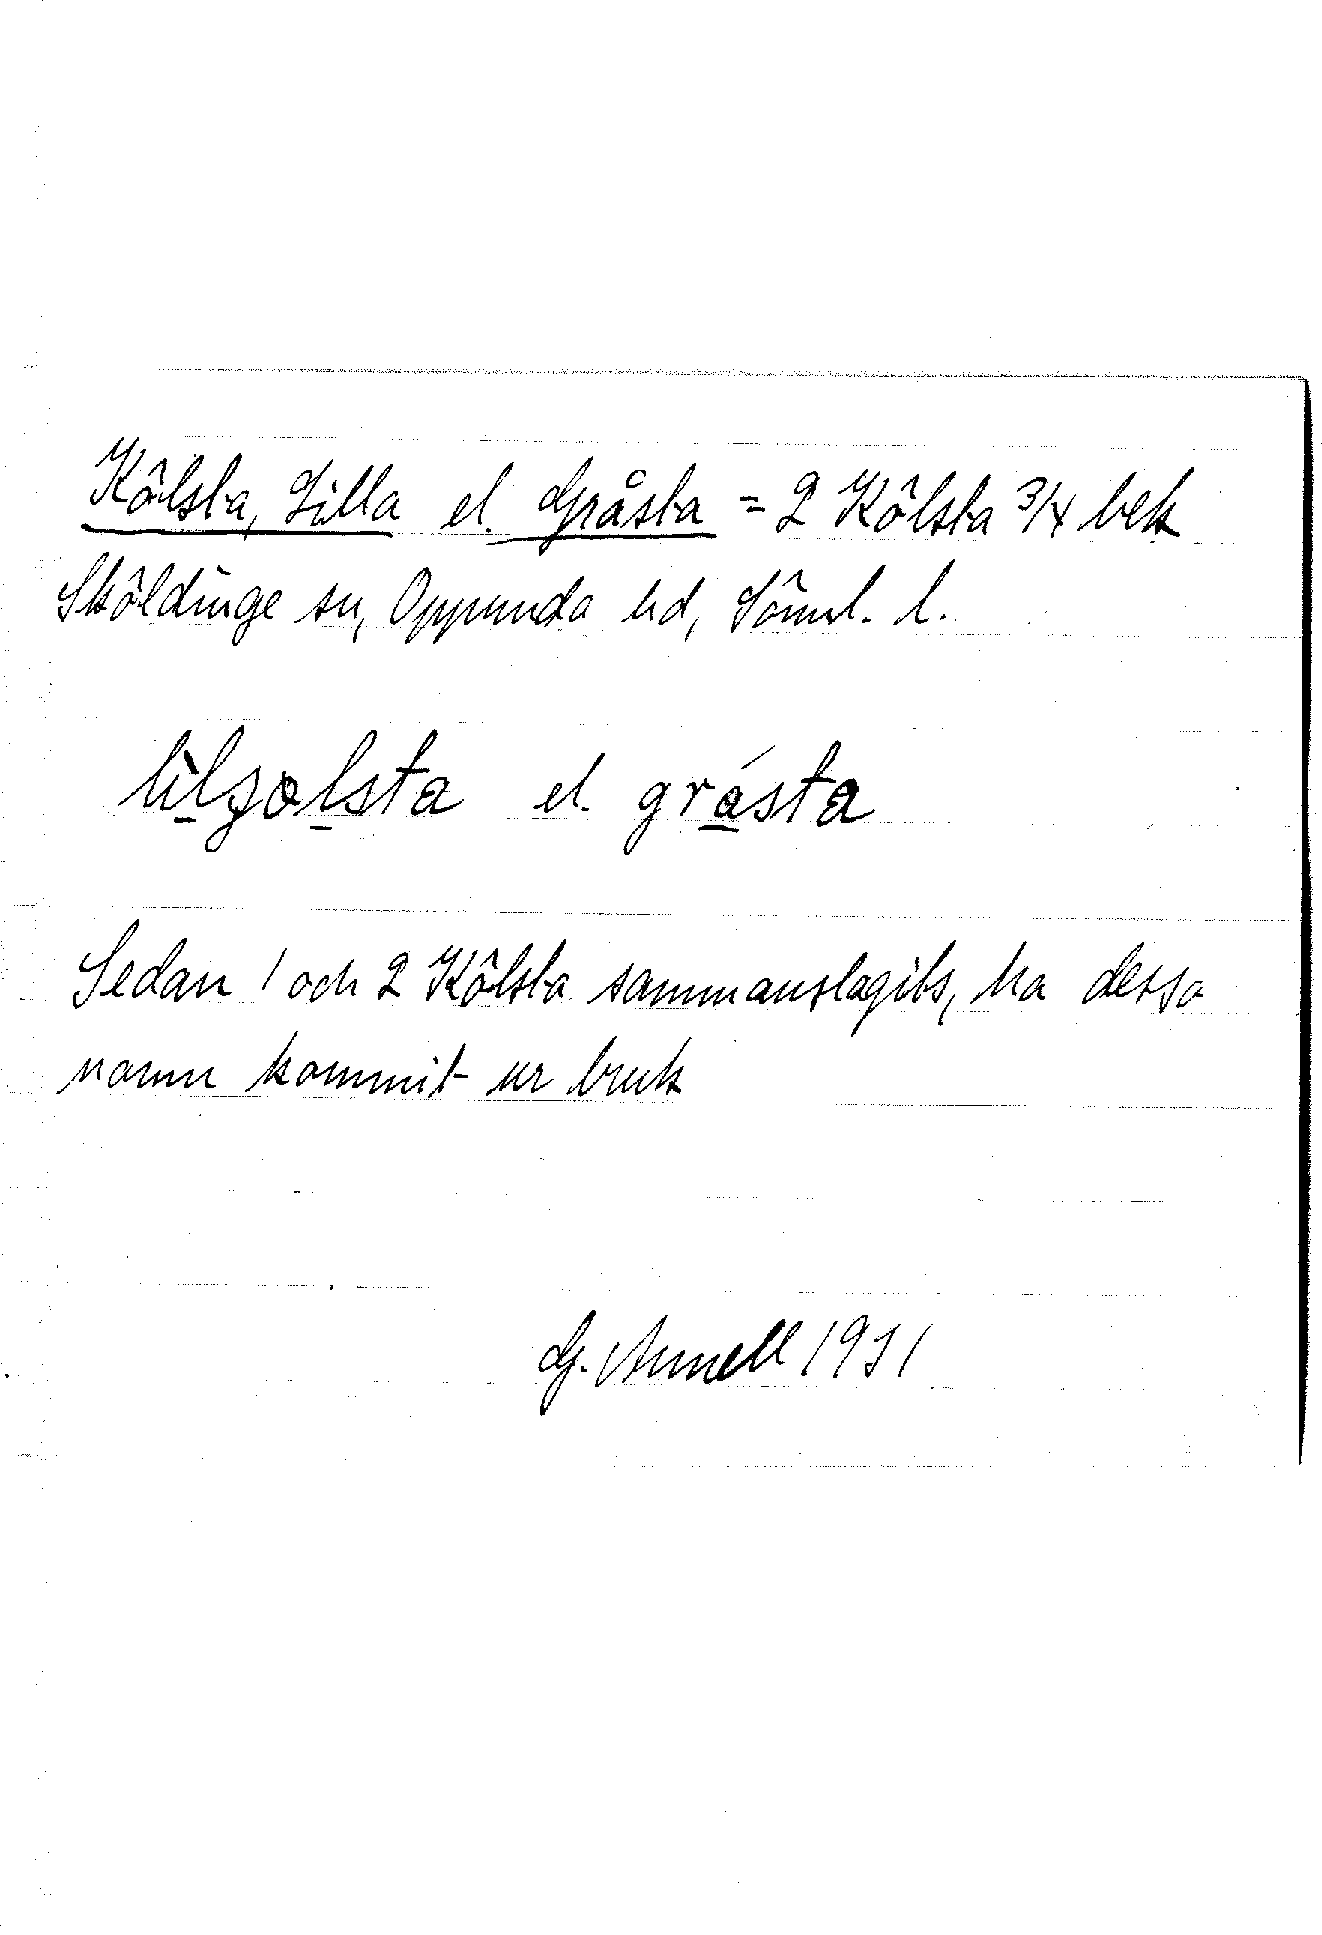 Kölsta, Lilla el. Gråsta = 2 Kölsta 3/4 bek
Sköldinge sn, Oppunda hd, Söml. l.
el. grásta
Sedan 1 och 2 Kölsta sammanslagits, ha dessa
namn kommit ur bruk
G. Annell 1931